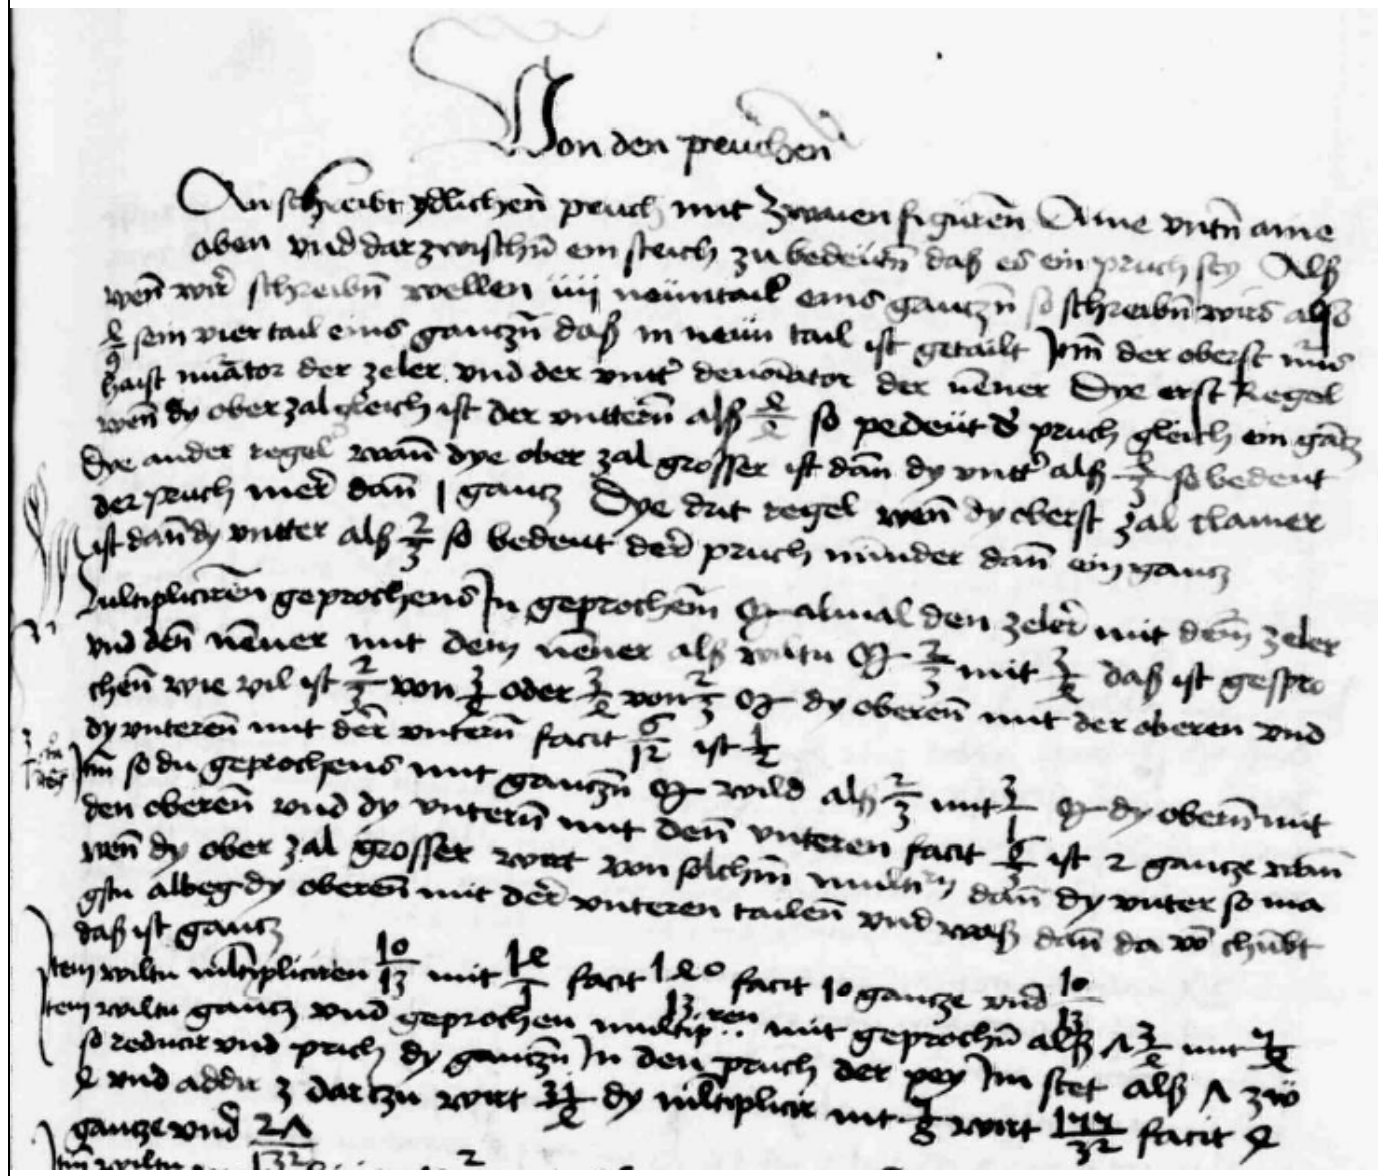 Von den pruchen
An schreibt ydlichen pruch mit zwaien figuren Aine vnten aine
oben vnd dar zwischn ein strich zu bedeutn daß es ein pruch sey Alß
wen wir schreibn wellen iiij neuntail eins gantzn so schreibn wirs also
4/9 sein vier tail eins gantzn daß in neun tail ist getailt Jtm der oberst
haist der zeler vnd der vntter der nenner Dye erst Regel
wen dy ober zal gleich ist der vnttern alß 4/4 so pedeut pruch gleich ein gantz
Dye ander regel wann dye ober zal grosser ist dann dy vntter alß so bedeut
der pruch mer dann 1 gantz Dye drit regel wen dy oberst zal clainer
ist dann dy vntter alß 2/3 so bedeut der pruch minder dann ein gantz
Multipliciren geprochens Jn geprochem almal den zeler mit dem zeler
vnd den nenner mit dem nenner alß wiltu 2/3 mit 3/4 daß ist gespro
chen wie vil ist 2/3 von 3/4 oder 3/4 von 2/3 dy oberen mit der oberen vnd
dy vnteren mit der vntern facit 6/12 ist 1/2
Jtm so du geprochens mit gantzn wild alß 2/3 mit 3/1 dy obern mit
den oberen vnd dy vntern mit den vnteren facit 6/3 ist 2 gantze wan
wen dy ober zal grosser wirt von solchem dann dy vnter so ma
gstu albeg dy oberen mit der vnteren tailen vnd waß dann da chumbt
daß ist gantz
Jtem wiltu multipliciren 10/13 mit 14/1 facit 140/13 facit 10 gantze vnd 10/13
Jtem wiltu gantz vnd geprochen mit geprochn alß 7 3/4 mit
so reducir vnd prich dy gantzn Jn den pruch der pey Jm stet alß 7 zw
4 vnd addir 3 dar tzu wirt 31/4 dy multiplicir mit wirt facit 4
gantze vnd 27/32
Jtm wiltu